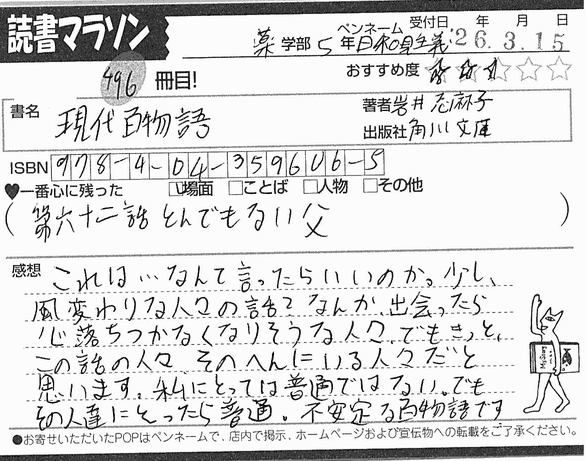 読書マラソン
496 冊目!
薬 学部 5 年 ペンネーム 日和見主義 受付日 '26年 3月 15日
おすすめ度 ★★★☆☆☆
書名 現代百物語
著者 岩井志麻子
出版社 角川文庫
ISBN 978-4-04-359606-5
♥一番心に残った ☑場面 □ことば □人物 □その他
(第六十二話 とんでもない父)
感想 これは…なんて言ったらいいのか。少し、
風変わりな人々の話でなんか、出会ったら
心落ちつかなくなりそうな人々。でもきっと、
この話の人々、そのへんにいる人々だと
思います。私にとっては普通ではない。でも
その人達にとったら普通。不安定な百物語です
●お寄せいただいたPOPはペンネームで、店内で掲示、ホームページおよび宣伝物への転載をご了承ください。